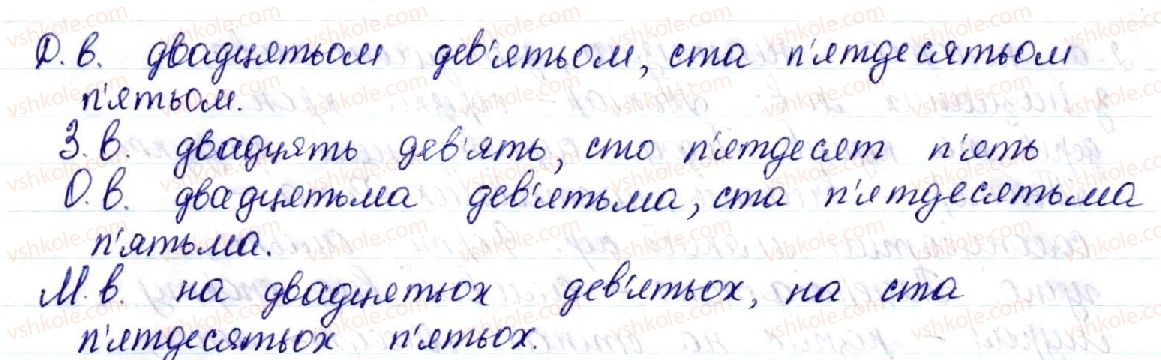 Д.в. двадцятьом дев'ятьом, ста п'ятдесятьом
п'ятьом.
З.в. двадцять дев'ять, сто п'ятдесят п'ять
О.в. двадцятьма дев'ятьма, ста п'ятдесятьма
п'ятьма.
М.в. на двадцятьох дев'ятьох, на ста
п'ятдесятьох п'ятьох.